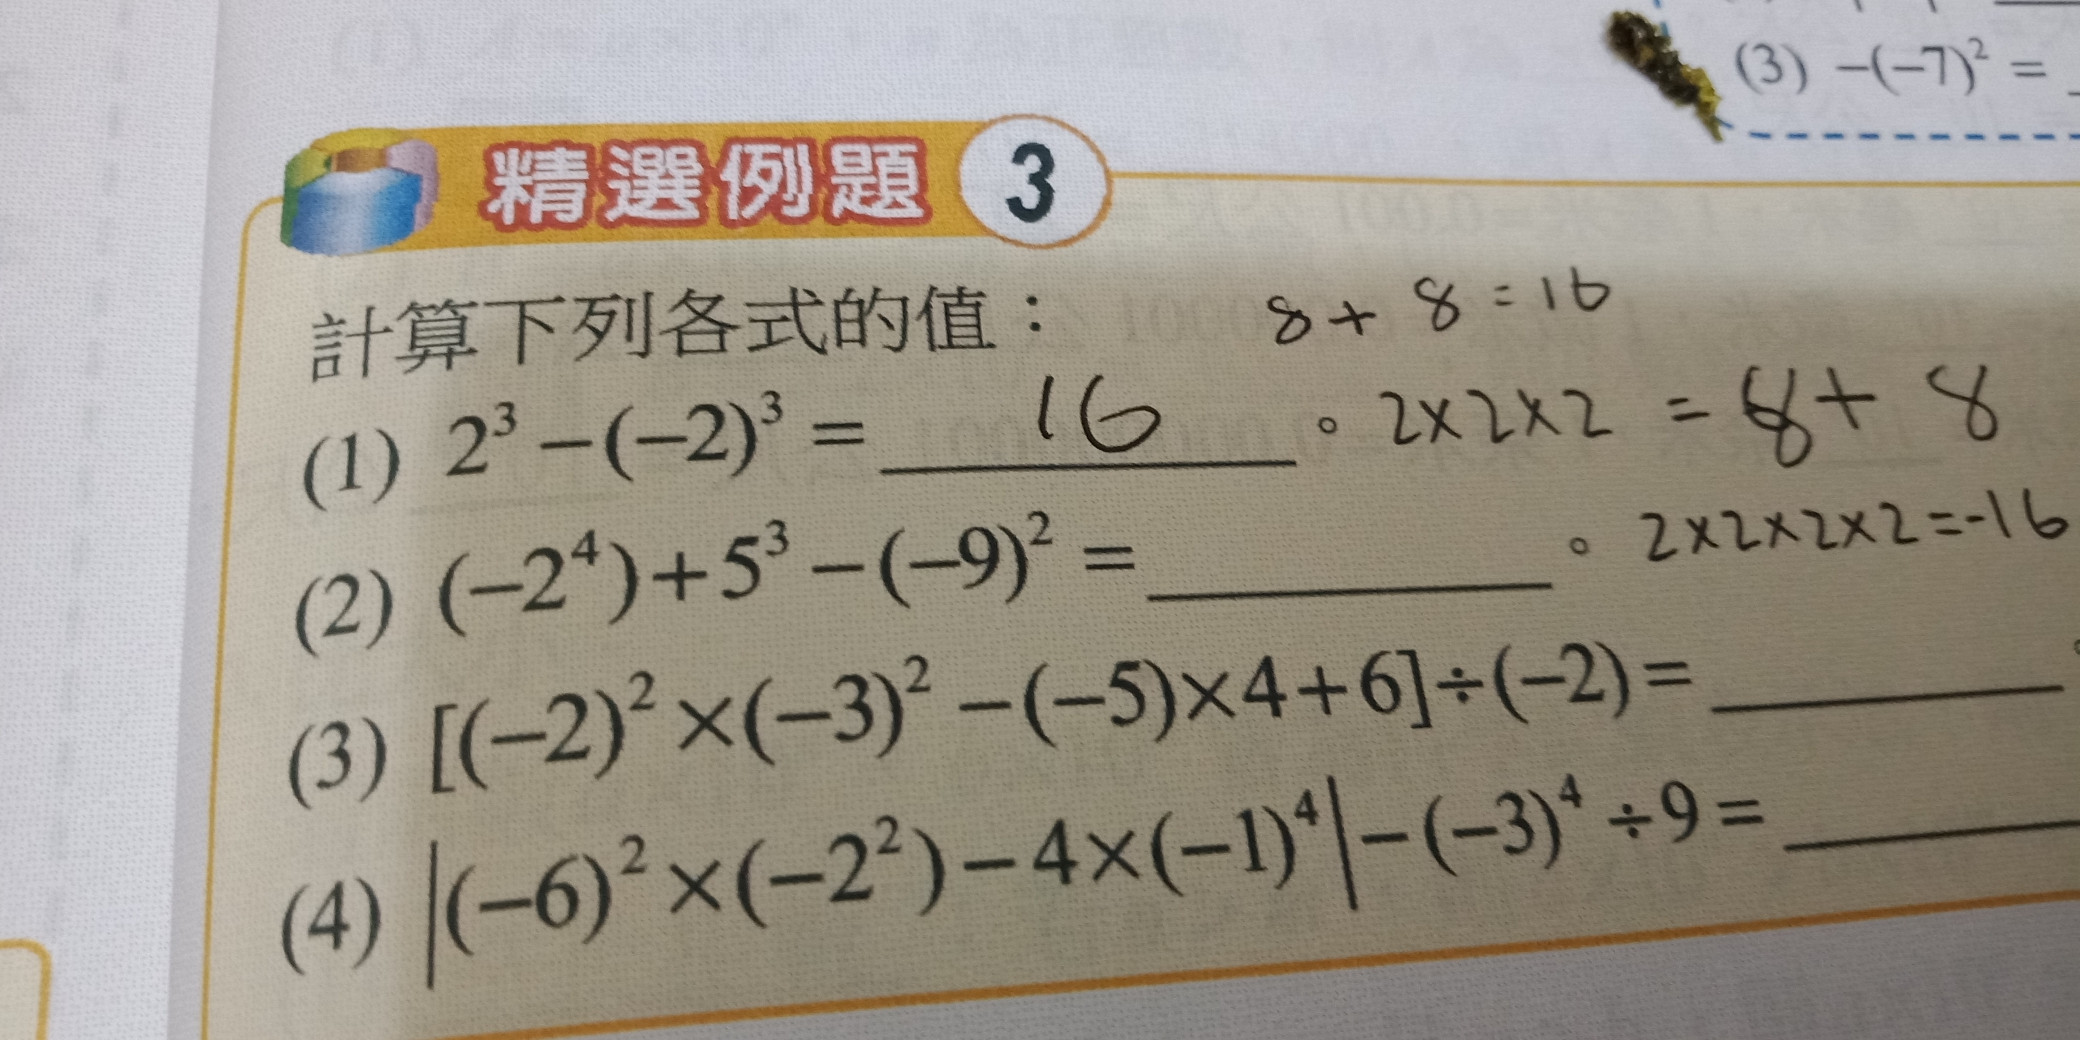 (3) −(−7)² =
精選例題 3
計算下列各式的值：
8 + 8 = 16
(1) 2³ − (−2)³ = 16 。 2×2×2 = 8 + 8
(2) (−2⁴) + 5³ − (−9)² = ______ 。 2×2×2×2 = -16
(3) [(−2)² × (−3)² − (−5) × 4 + 6] ÷ (−2) = ______
(4) |(−6)² × (−2²) − 4 × (−1)⁴| − (−3)⁴ ÷ 9 = ______